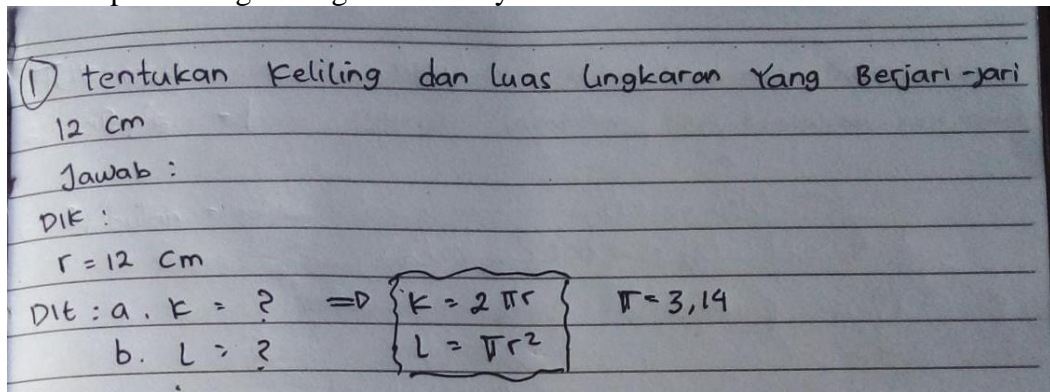 ① tentukan Keliling dan luas lingkaran Yang Berjari-jari
12 cm
Jawab :
DIK :
r = 12 cm
Dit : a. K = ? ⇒ K = 2 πr π = 3,14
b. L = ? L = πr²